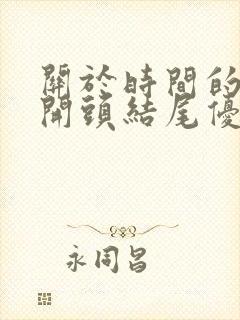 關於時間的
開頭結尾優
永同昌